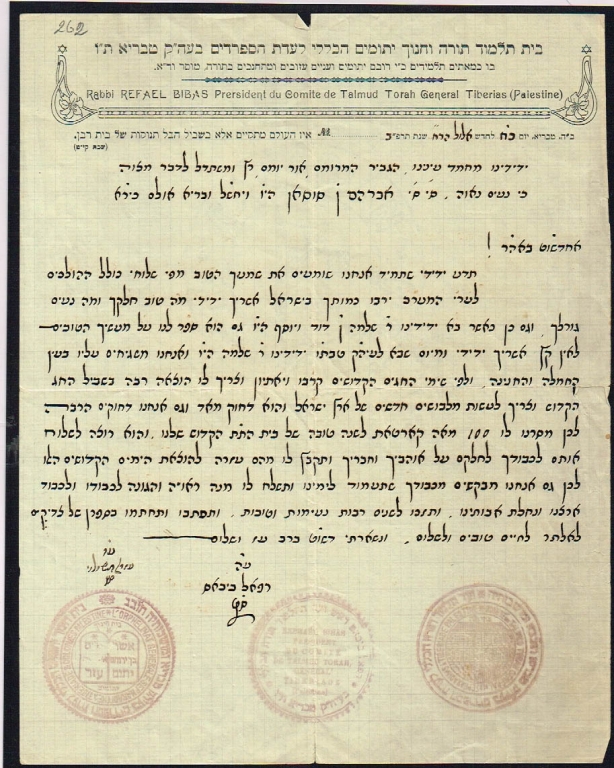 262
בית תלמוד תורה וחנוך יתומים הכללי לעדת הספרדים בעה״ק טבריא ת״ו
בו כמאתים תלמידים כ״י רובם יתומים ועניים עזובים ומתחנכים בתורה, מוסר וד״א.
Rabbi REFAEL BIBAS Prersident du Comite de Talmud Torah General Tiberias (Palestine)
ב״ה. טבריא, יום לחדש אלול שנת תרפ״ № אין העולם מתקיים אלא בשביל הבל תנוקות של בית רבן.
(שבת קי״ט)
ידידינו מחמד עינינו, הגביר המרומם, ומשתדל לדבר מצוה
כי נעים נאוה, אברהם ן׳ סוסאן הי״ו
!
תדע ידידי שתמיד אנחנו שומעים את שמעך הטוב מפי שלוחי כולל ההולכים
לערי המערב ירבו כמותך בישראל אשריך ידידי מה טוב חלקך ומה נעים
גורלך, וגם כן כאשר בא ידידינו ר׳ שלמה ן׳ דוד ויוסף הי״ו גם הוא ספר לנו על מעשיך הטובים
לאין קץ אשריך ידידי ומיום שבא לעיה״ק טבתו ידידינו ר׳ שלמה הי״ו ואנחנו משגיחים עליו בעין
החמלה והחנינה, ולפי שימי החגים הקדושים קרבו ויאתיון וצריך לו הוצאה רבה בשביל החג
הקדוש וצריך לעשות מלבושים חדשים של ארץ ישראל והוא דחוק מאד וגם אנחנו דחוקים הרבה
לכן מסרנו לו 100 מאה קארטאת לשנה טובה של בית הת״ת הקדוש שלנו, והוא רוצה לשלוח
אותם לכבודך לחלקם על אוהביך וחבריך ותקבץ לו מהם עזרה להוצאת הימים הקדושים האלו
לכן גם אנחנו מבקשים מכבודך שתעמוד לימינו ותשלח לו מנה ראויה והגונה לכבודו ולכבוד
ארצנו ונחלת אבותינו, ותזכו לשנים רבות נעימות וטובות, ותכתבו ותחתמו בספרן של צדיקים
לאלתר לחיים טובים ולשלום, ונשארתי דו״ש ברב עז ושלום
ע״ה
רפאל ביבאס
ס״ט
RAPHAEL BIBAS
PRESIDENT
DU COMITE
DU TALMUD TORAH
GENERAL
TIBERIADE